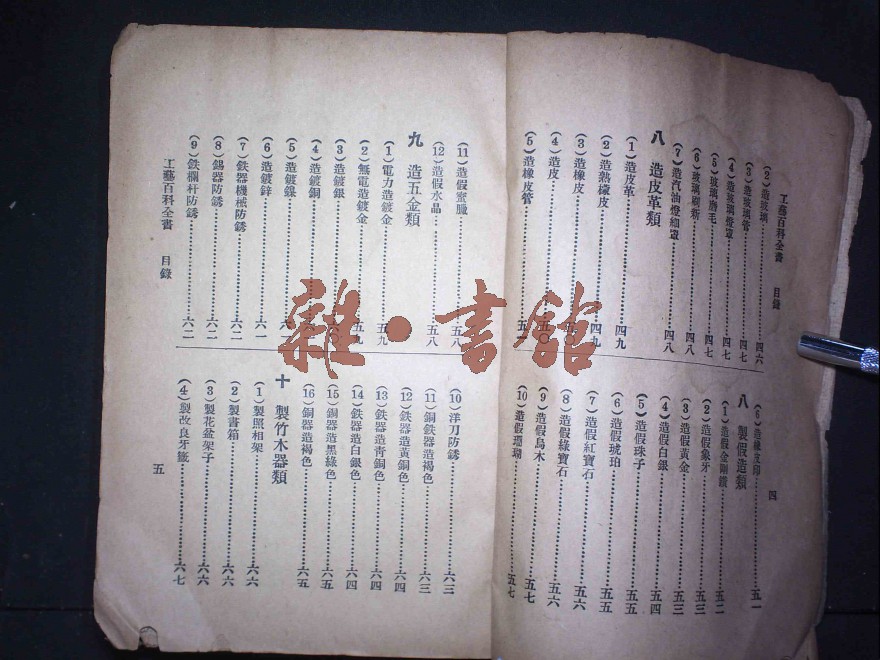 工藝百科全書 目錄 四
(2) 造玻璃……四六
(3) 造玻璃管……四七
(4) 造玻璃燈罩……四七
(5) 玻璃磨毛……四七
(6) 玻璃刷新……四八
(7) 造汽油燈細罩……四八
八 造皮革類
(1) 造皮革……四九
(2) 造熟橡皮……四九
(3) 造橡皮……五〇
(4) 造皮……五〇
(5) 造橡皮管……五一
(6) 造橡皮印……五一
八 製假造類
(1) 造假金剛鑽……五二
(2) 造假象牙……五三
(3) 造假黃金……五三
(4) 造假白銀……五四
(5) 造假珠子……五五
(6) 造假琥珀……五五
(7) 造假紅寶石……五六
(8) 造假綠寶石……五六
(9) 造假烏木……五七
(10) 造假珊瑚……五七
(11) 造假蜜臘……五八
(12) 造假水晶……五八
九 造五金類
(1) 電力造鍍金……五九
(2) 無電造鍍金……五九
(3) 造鍍銀……六〇
(4) 造鍍銅……六
(5) 造鍍鎳……六
(6) 造鍍鋅……六一
(7) 鉄器機械防銹……六二
(8) 錫器防銹……六二
(9) 鉄欄杆防銹……六二
(10) 洋刀防銹……六三
(11) 銅鉄器造褐色……六三
(12) 鉄器造黃銅色……六四
(13) 鉄器造青銅色……六四
(14) 鉄器造白銀色……六四
(15) 銅器造黑綠色……六五
(16) 銅器造褐色……六五
十 製竹木器類
(1) 製照相架……六六
(2) 製書箱……六六
(3) 製花盆架子……六六
(4) 製改良牙籤……六七
工藝百科全書 目錄 五
雜·書館